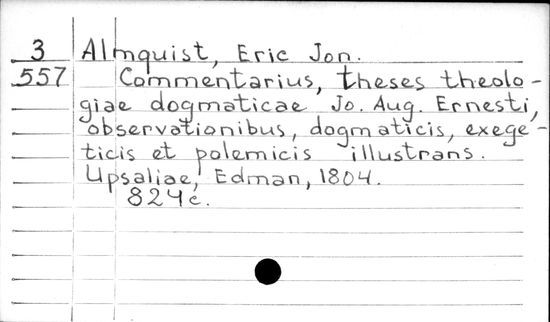 3 Almquist, Eric Jon.
557 Commentarius, theses theolo-
giae dogmaticae Jo. Aug. Ernesti,
observationibus, dogmaticis, exege-
ticis et polemicis illustrans.
Upsaliae, Edman, 1804.
824 c.